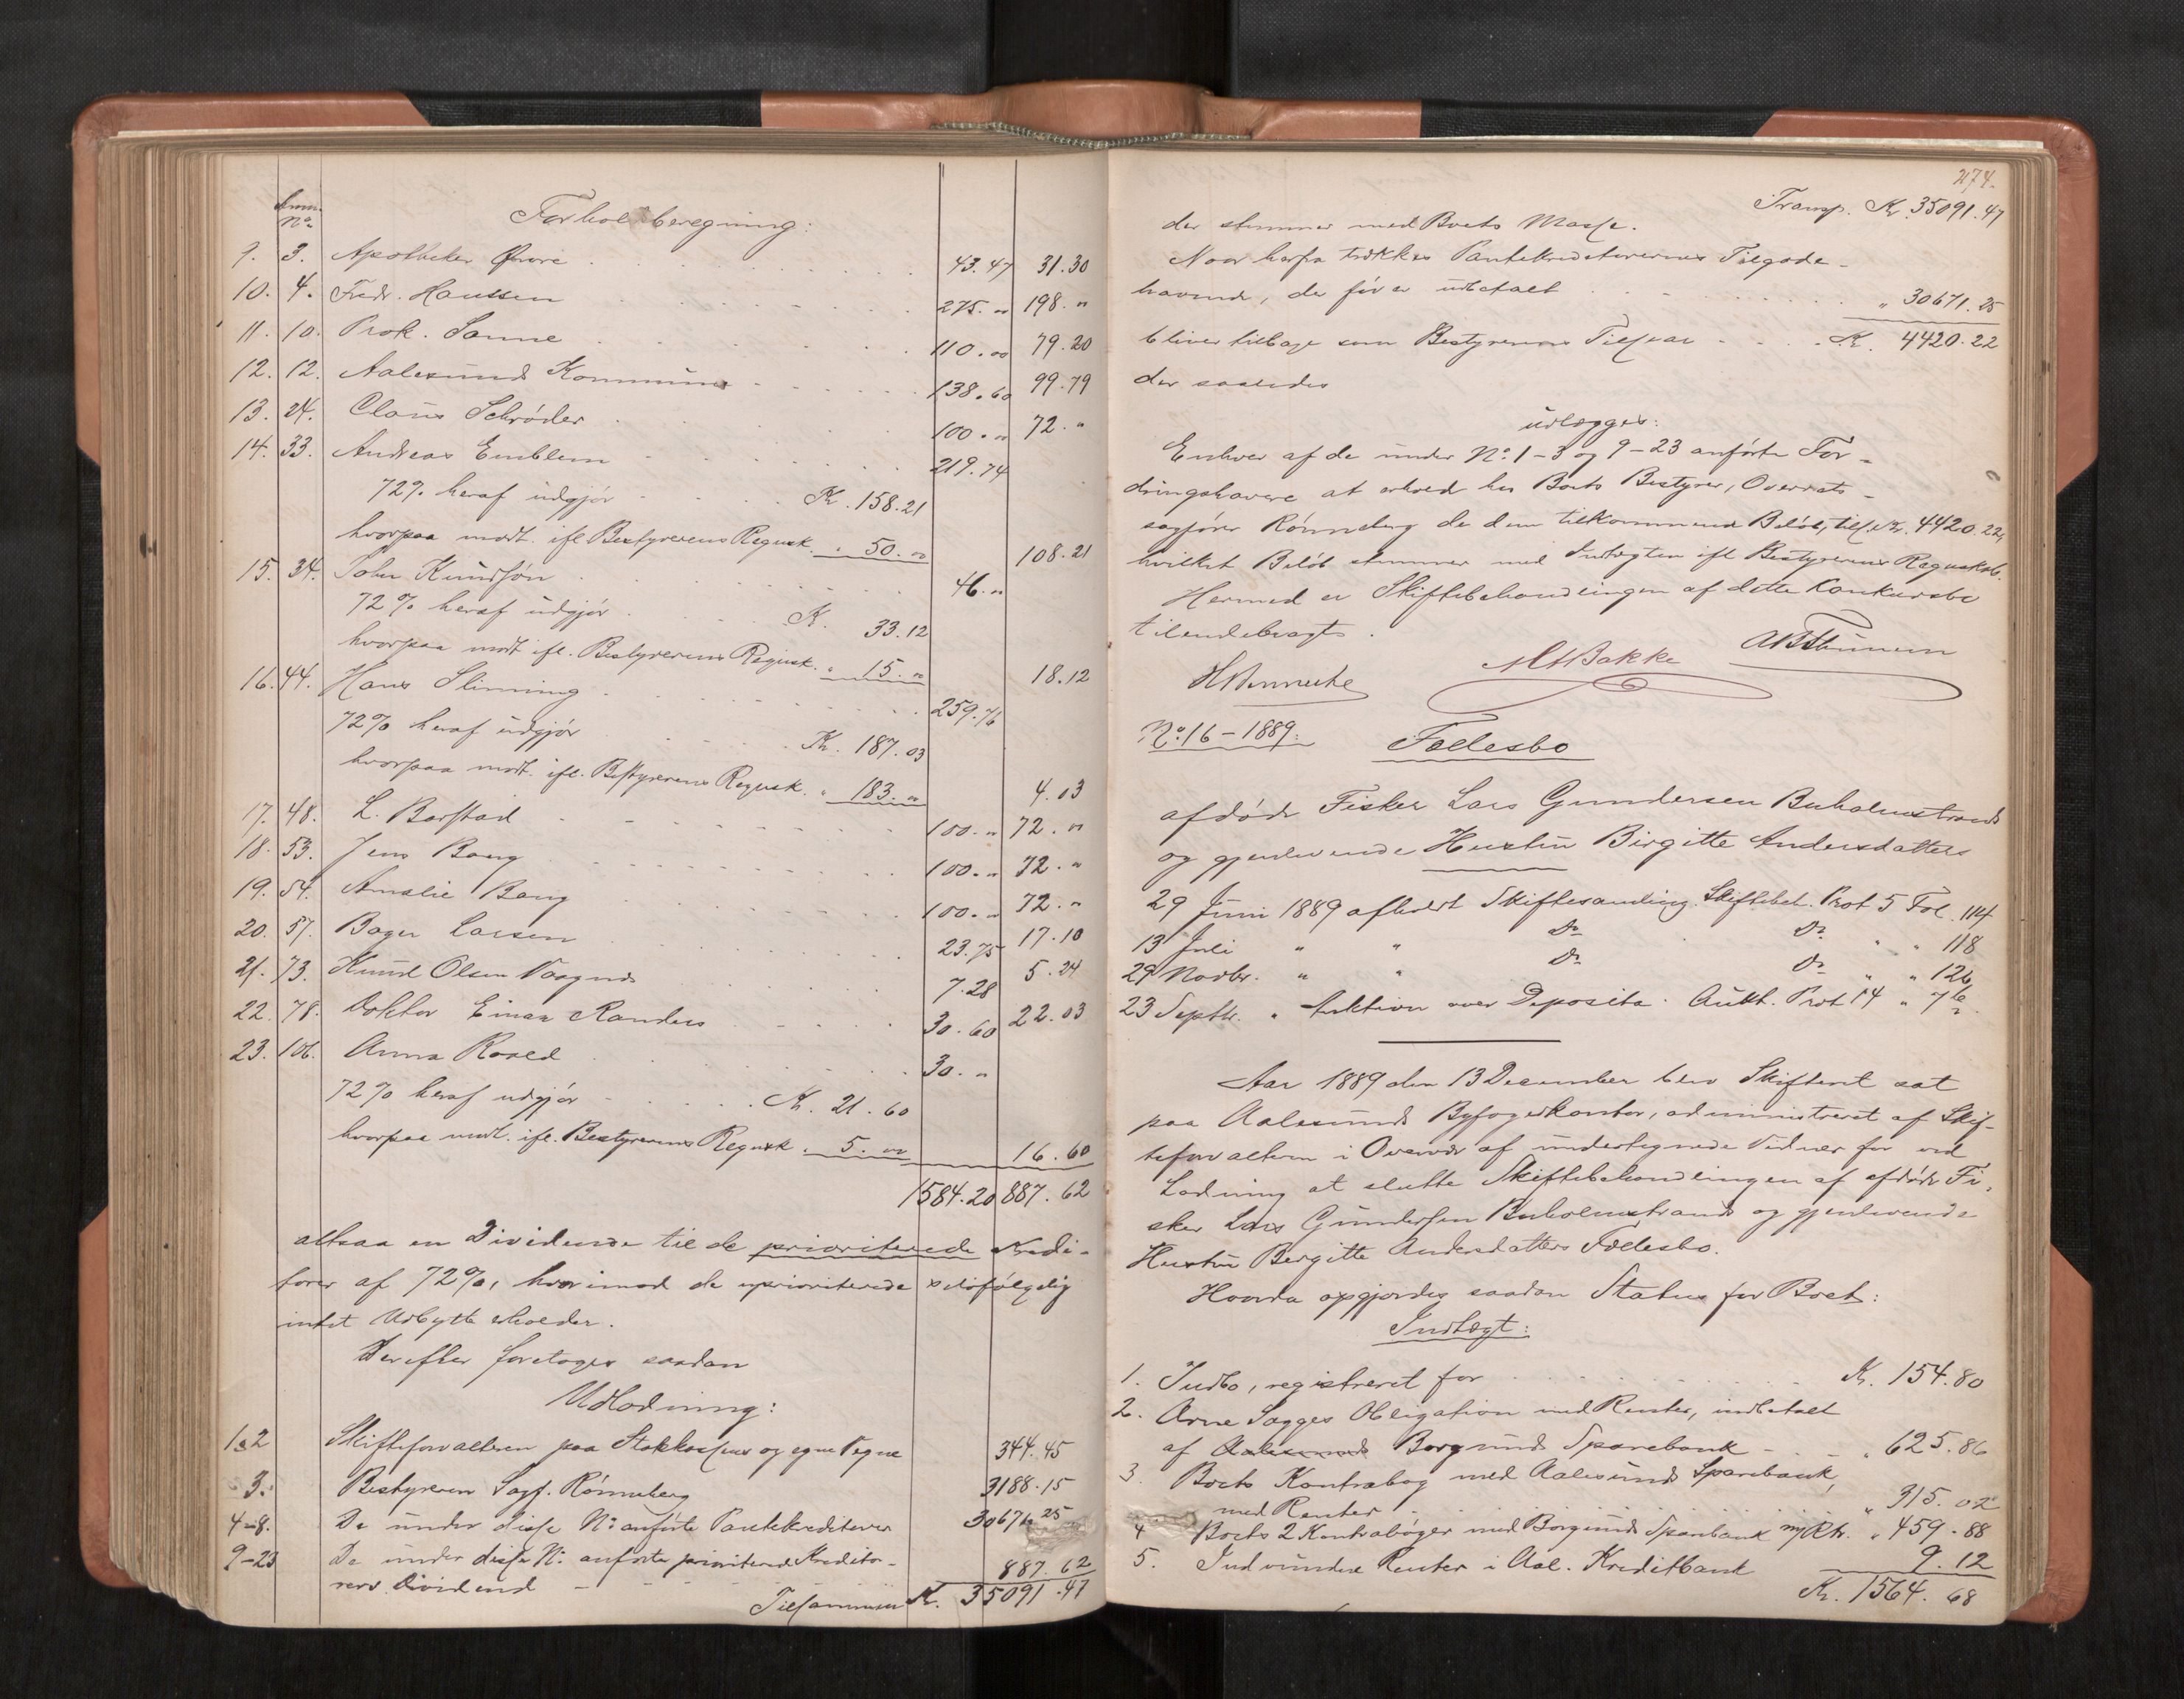 Anm.
No.
Forholdsberegning:
9. 3. Apotheker Øwre 43.47 31.30
10. 4. Fredr. Hanssen 275. " 198. "
11. 10. Prok. Sanne 110.00 79.20
12. 12. Aalesunds Kommune 138.60 99.79
13. 24. Claus Schrøder 100. " 72. "
14. 33. Andreas Emblem 219.74
72% heraf udgjør Kr. 158.21
hvorpaa modt. ifl. Bestyrerens Regnsk. " 50. " 108.21
15. 34. John Knudsøn 46. "
72% heraf udgjør K. 33.12
hvorpaa modt ifl. Bestyrerens Regnsk. " 15. " 18.12
16. 44. Hans Slinning 259.76
72% heraf udgjør Kr. 187.03
hvorpaa modt. ifl. Bestyrerens Regnsk. " 183. " 4.03
17. 48. L. Barstad 100. " 72. "
18. 53. Jens Bang 100. " 72. "
19. 54. Amalie Bang 100. " 72. "
20. 57. Bager Larsen 23.75 17.10
21. 73. Knud Olsen Vaagnæs 7.28 5.24
22. 78. Doktor Einar Randers 30.60 22.03
23. 106. Anna Roald 30. "
72% heraf udgjør Kr. 21.60
hvorpaa modt. ifl. Bestyrerens Regnsk. 5.00 16.60
1584.20 887.62
altsaa en Dividende til de prioriterede Kredi-
torer af 72%, hvorimod de uprioriterede selvfølgelig
intet Udbytte erholder.
Derefter foretoges saadan
Udlodning:
1&2 Skifteforvalteren paa Statskassens og egne Vegne 344.45
3. Bestyreren Sagf. Rønneberg 3188.15
4-8. De under disse No: anførte Pantekreditorer 30671.25
9-23 De under disse No: anførte prioriterede Kredito-
rers Dividend 887.62
Tilsammen Kr. 35091.47
274.
Transp. Kr. 35091.47
der stemmer med Boets Masse.
Naar herfra trækkes Pantekreditorernes Tilgode-
havende, der før er udbetalt " 30671.25
bliver tilbage som Bestyrerens Tilsvar K. 4420.22
der saaledes
udlægges:
Enhver af de under No: 1-3 og 9-23 anførte For-
dringshavere at erholde hos Boets Bestyrer, Overrets-
sagfører Rønneberg de dem tilkommende Beløb, tils. Kr. 4420.22,
hvilket Beløb stemmer med Indtægten ifl Bestyrerens Regnskab.
Hermed er Skiftebehandlingen af dette Konkursbo
tilendebragt.
No: 16-1889: Fællesbo
afdøde Fisker Lars Gundersen Buholmstrand
og gjenlevende Hustru Birgitte Andersdatters
29 Juni 1889 afholdt Skiftesamling. Skiftebeh. Prot 5 Fol. 114
13 Juli " " Do Do " " 118
29 Novbr. " " Do Do " " 126
23 Septbr. " Auktion over Deposita. Aukt. Prot 14 " 7
Aar 1889 den 13 December blev Skifteret sat
paa Aalesunds Byfogedkontor, administreret af Skif-
teforvalteren i Overvær af undertegnede Vidner for ved
Lodning at slutte Skiftebehandlingen af afdøde Fi-
sker Lars Gundersen Buholmstrand og gjenlevende
Hustru Bergitte Andersdatters Fællesbo.
Hvorda opgjordes saadan Status for Boet:
Indtægt:
1. Indbo, registreret for Kr. 154.80
2. Arne Sagges Obligation med Renter, indbetalt
af Aalesunds Borgunds Sparebank " 625.86
3. Boets Kontrabog med Aalesunds Sparebank,
med Renter " 315.02
4 Boets 2 Kontrabøger med Borgunds Sparebank m/Rtr. " 459.88
5. Indvundne Renter i Aal. Kreditbank 9.12
Kr. 1564.68